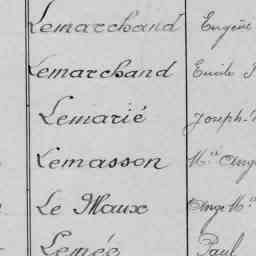 Lemarchand Eugène
Lemarchand Emile
Lemarié Joseph-
Lemasson Mie Ange
Le Maux Ange Mie
Lemée Paul